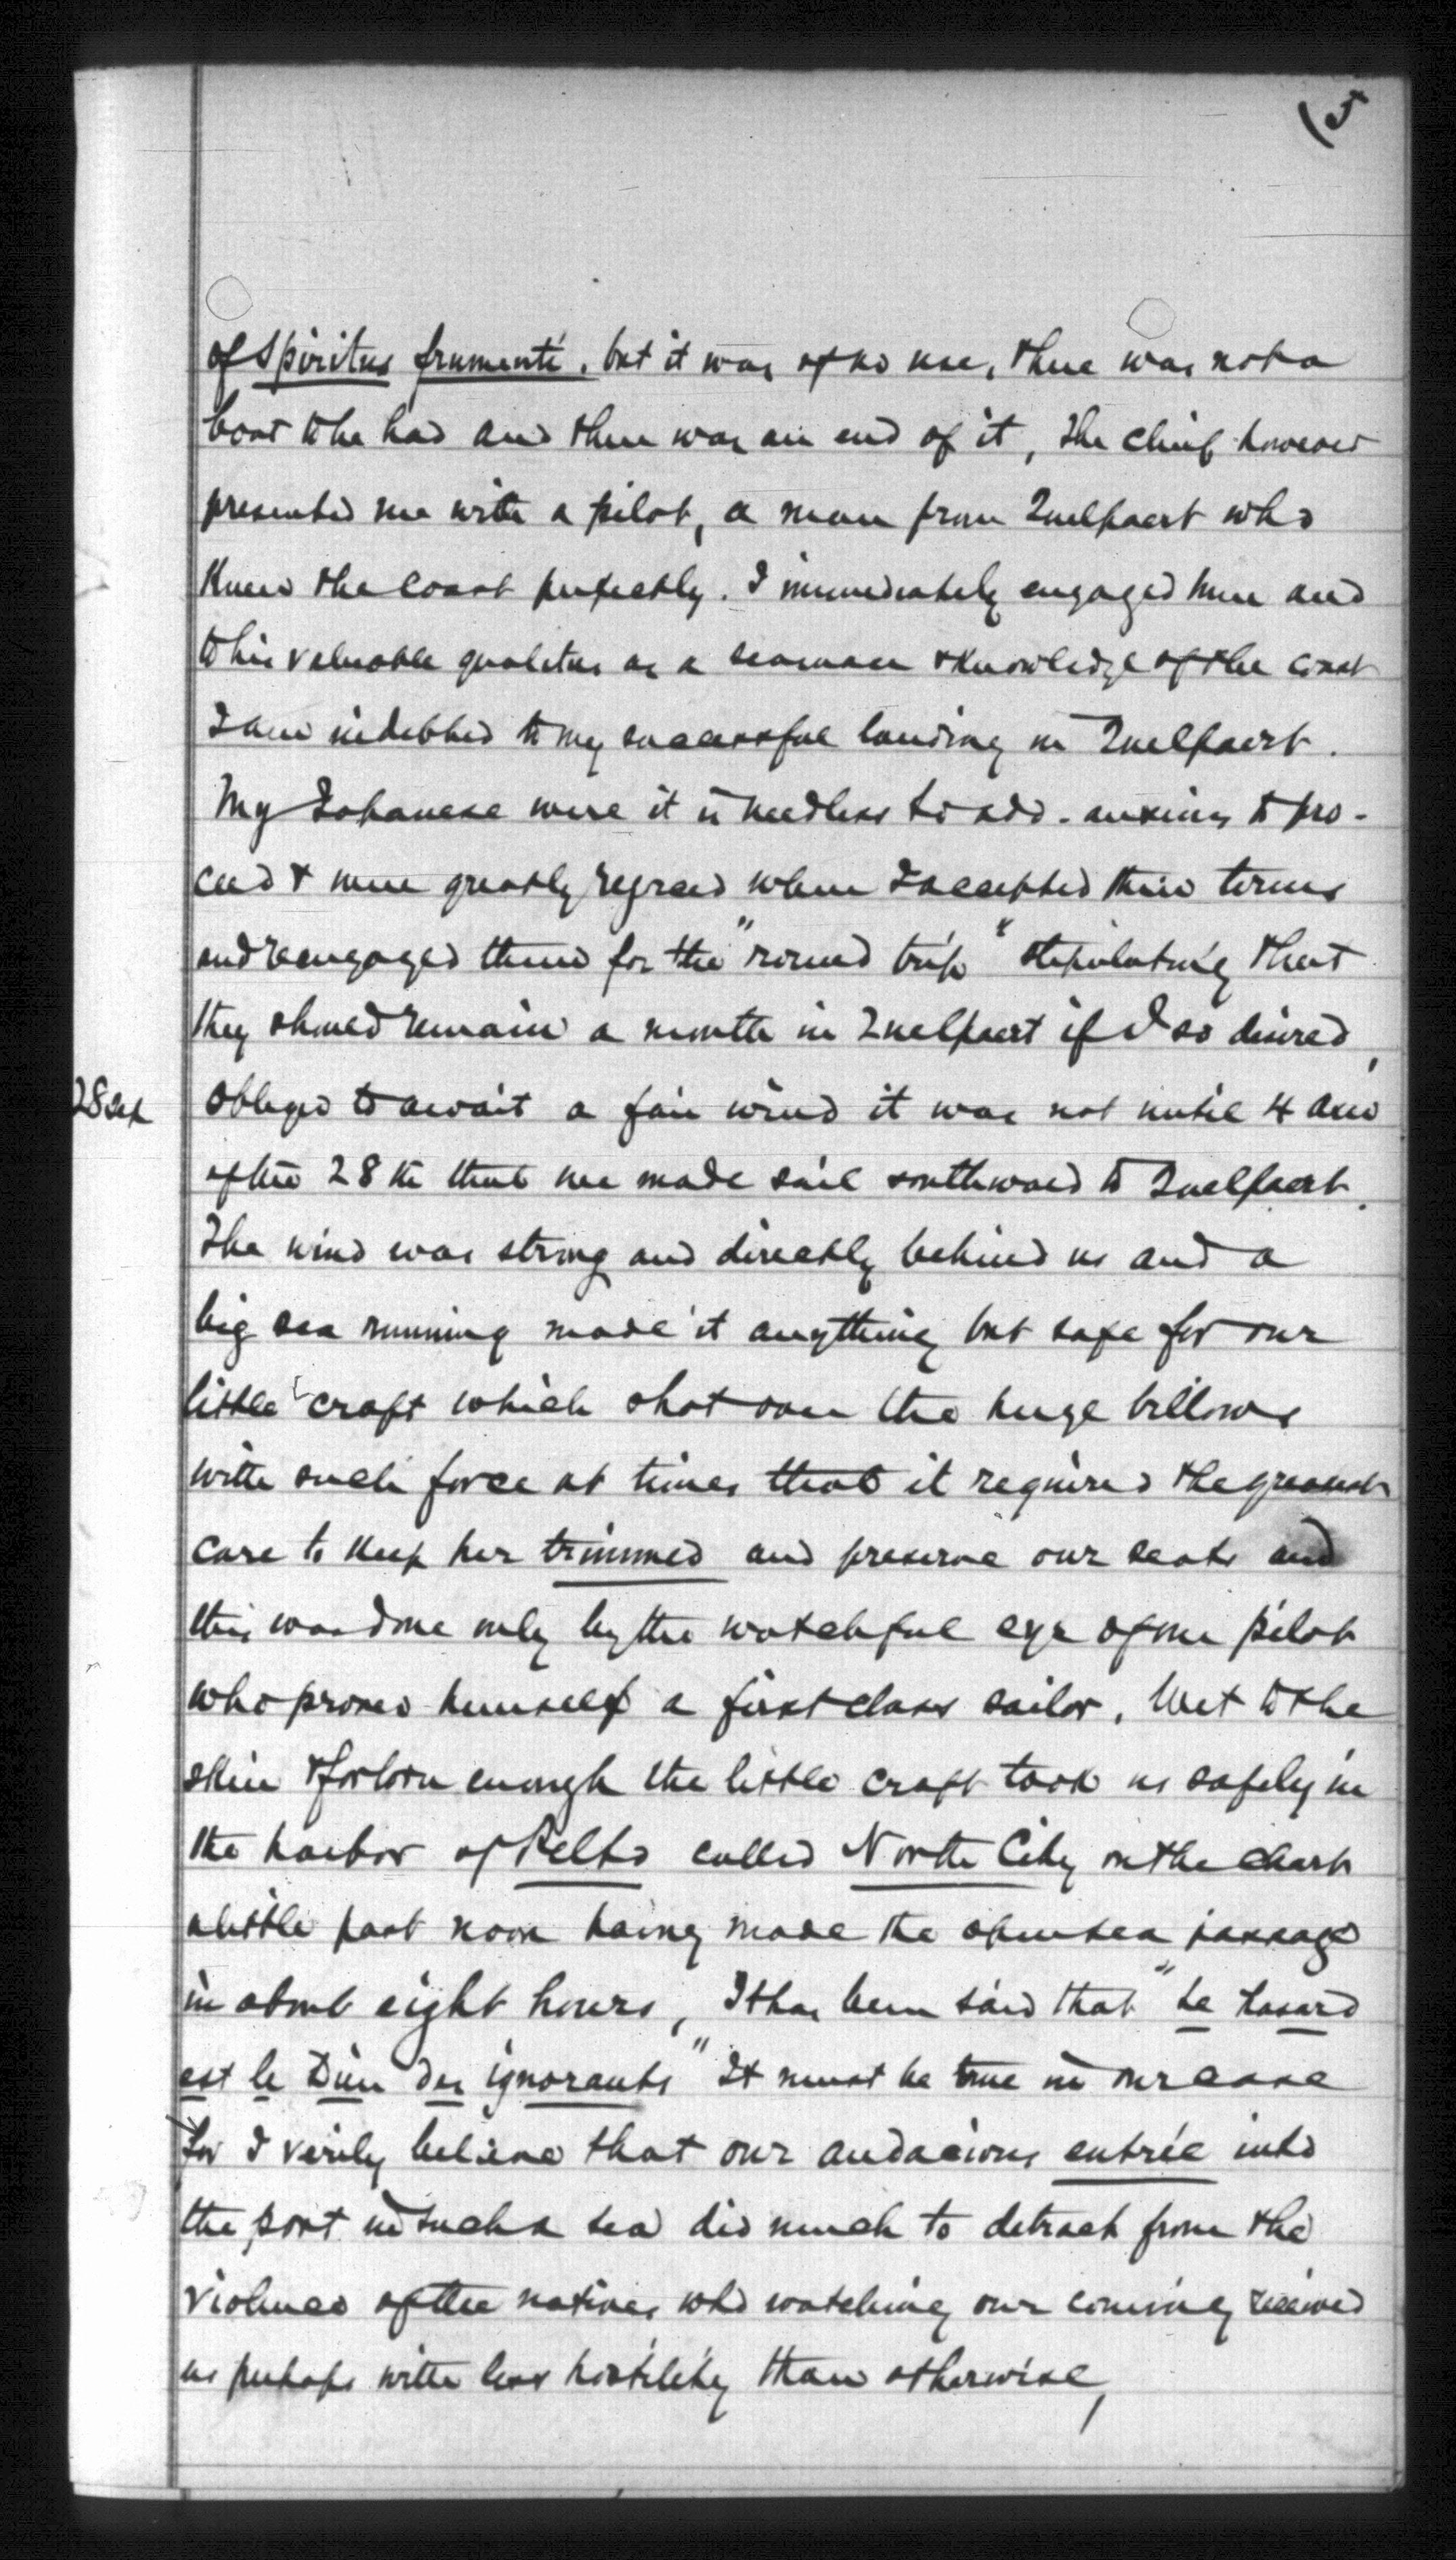 (5
of spiritus frumenti, but it was of no use, there was not a
boat to be had and there was an end of it, The chief however
presented me with a pilot, a man from Quelpaert who
knew the coast perfectly. I immediately engaged him and
to his valuable qualities as a seaman & knowledge of the coast
I am indebted to my successful landing in Quelpaert.
My Japanese were it is needless to add - anxious to pro-
ceed & were greatly when I accepted their terms
and reengaged them for the "round trip" stipulating that
they should remain a month in Quelpaert if I so desired,
28 Sep
obliged to await a fair wind it was not until 4 a.m.
of the 28th that we made sail southward to Quelpaert.
The wind was strong and directly behind us and a
big sea running made it anything but safe for our
little craft which shot over the huge billows
with such force at times that it required the greatest
care to keep her trimmed and preserve our seats and
this was done only by the watchful eye of our pilot
who proved himself a first class sailor. Wet to the
skin & forlorn enough the little craft took us safely in
the harbor of called North City on the chart
a little past noon having made the open sea passage
in about eight hours, It has been said that "le hasard
est le Dieu des ignorants" It must be true in our case
for I verily believe that our audacious entrée into
the port in such a sea did much to detract from the
violence of the natives who watching our coming received
us perhaps with less hostility than otherwise,